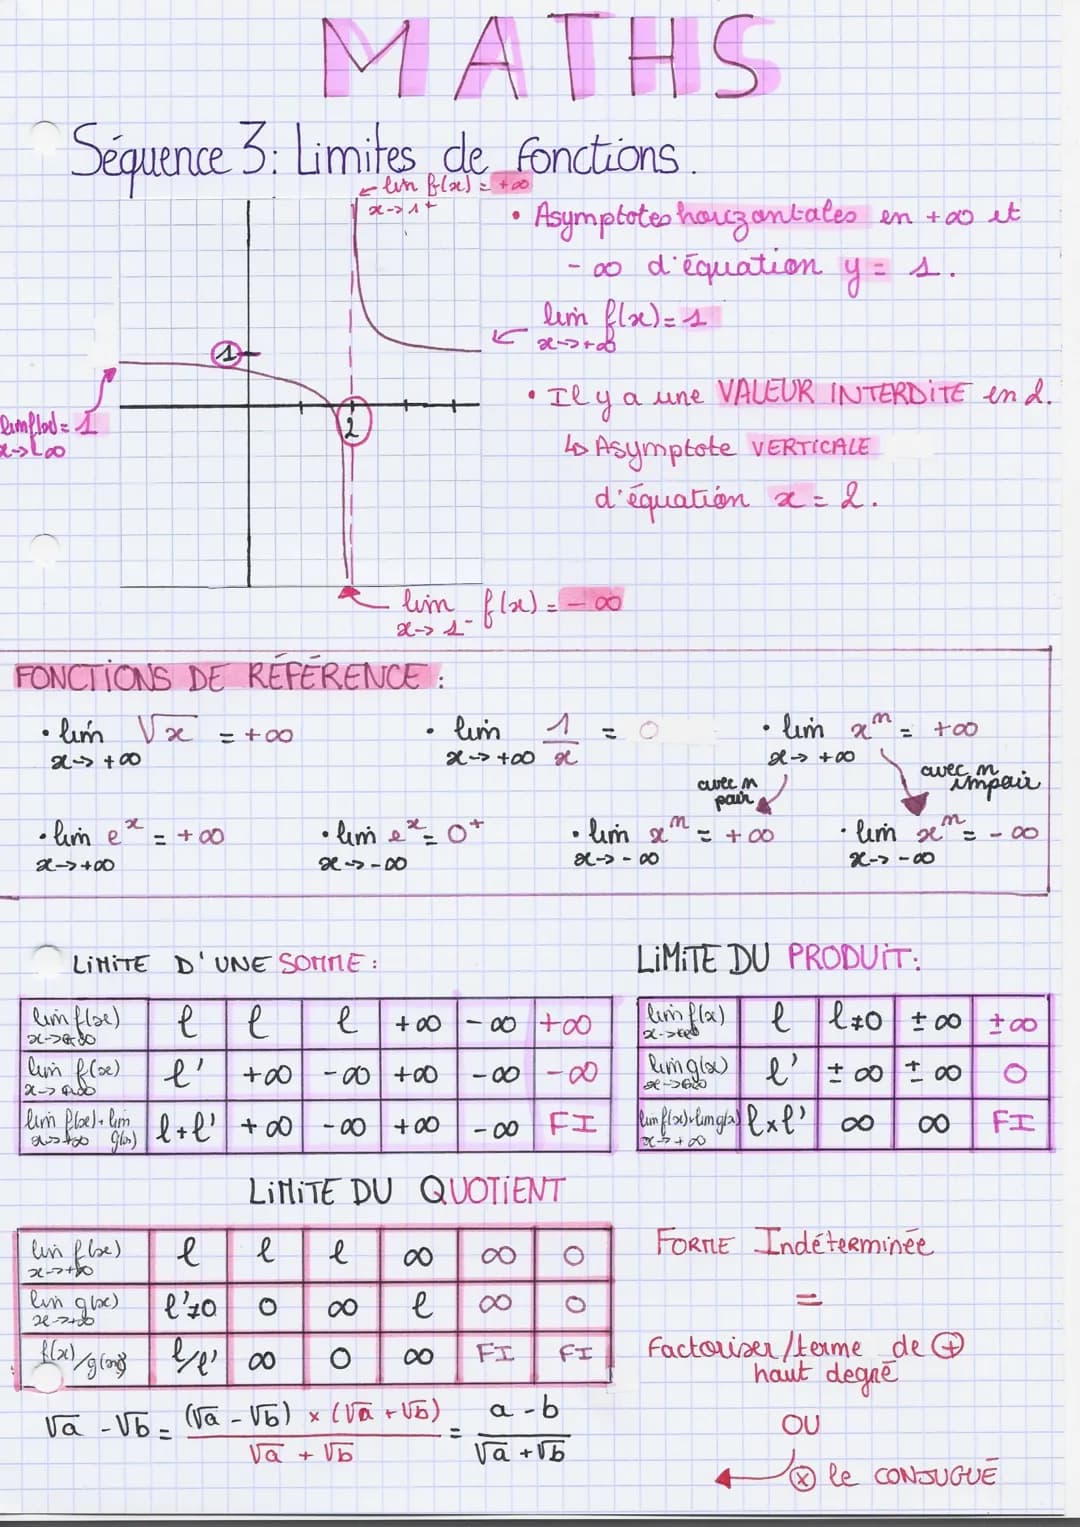 MATHS
Séquence 3: Limites de fonctions.
← lim f(x) = +∞
x→1⁺
• Asymptotes horizontales en +∞ et
-∞ d'équation y = 1.
← lim f(x) = 1
x→+∞
1
• Il y a une VALEUR INTERDITE en 2.
lim f(x) = 1
x→-∞
2
↳ Asymptote VERTICALE
d'équation x = 2.
lim f(x) = -∞
x→1⁻
FONCTIONS DE RÉFÉRENCE :
• lim √x = +∞ • lim 1/x = 0 • lim xⁿ = +∞
x→+∞ x→+∞ x→+∞
avec n pair avec n impair
• lim eˣ = +∞ • lim eˣ = 0⁺ • lim xⁿ = +∞ • lim xⁿ = -∞
x→+∞ x→-∞ x→-∞ x→-∞
LIMITE D'UNE SOMME :
lim f(x) l l l +∞ -∞ +∞
lim f(x) l' +∞ -∞ +∞ -∞ -∞
lim f(x) + lim g(x) l+l' +∞ -∞ +∞ -∞ FI
LIMITE DU PRODUIT :
lim f(x) l l≠0 ±∞ ±∞
lim g(x) l' ±∞ ±∞ 0
lim f(x)×lim g(x) l×l' ∞ ∞ FI
x→+∞
LIMITE DU QUOTIENT
lim f(x) l l l ∞ ∞ 0
x→+∞
lim g(x) l'≠0 0 ∞ l ∞ 0
x→+∞
f(x)/g(x) l/l' ∞ 0 ∞ FI FI
FORME Indéterminée
=
Factoriser/terme de ⊕
haut degré
OU
⊗ le CONJUGUÉ
√a - √b = (√a - √b) × (√a + √b) / √a + √b = a - b / √a + √b